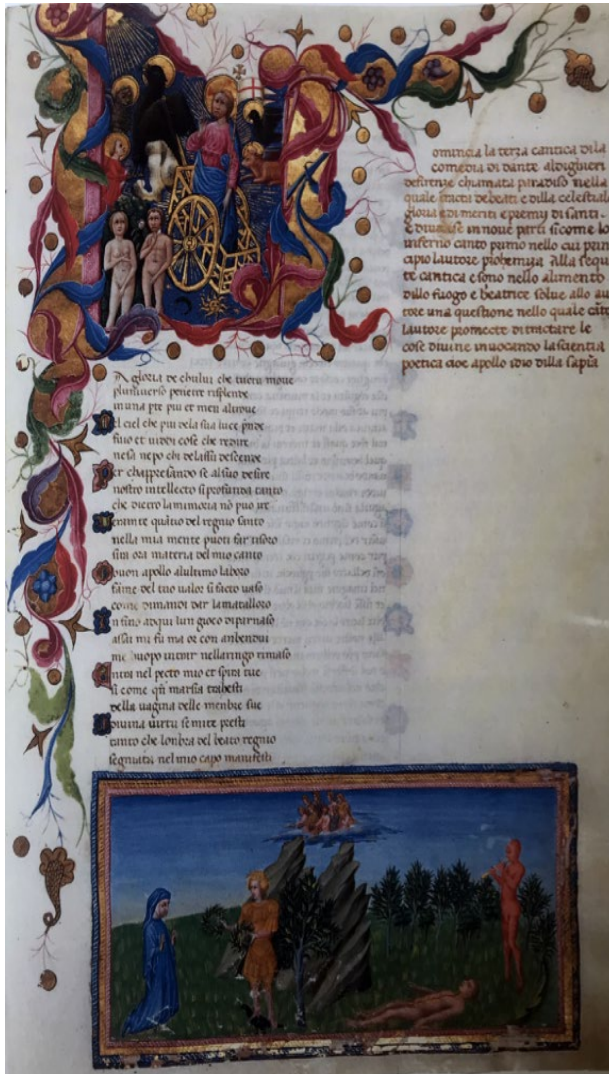 omincia la terza cantica di la
comedia di dante aldighieri
defirenze chiamata paradiso nella
quale tracta de beati e dilla celestial
gloria e di meriti e premy di santi.
E diuidise in noue parti sicome lo
inferno canto primo nello cui prin
cipio lautore prohemiza Alla sequ
te cantica e sono nello alimento
dillo fuogo e beatrice solue allo au
tore una questione nello quale cāto
lautore promecte di tractare le
cose diuine inuocando la scientia
poetica cioe apollo idio dilla sapiā
A gloria de chului che tucto moue
pluniuerso penetre risplende
in una pte piu et men altroue
el ciel che piu dela sua luce pnde
fuio et uiddi cose che redire
ne sa ne po chi de lassu descende
er chappresando se al suo desire
nostro intellecto si profunda tanto
che dietro la mimoria nō puo ire
eramte quātio del regnio santo
nella mia mente puoti far tisoro
sira ora materia del mio canto
buon apollo alultimo laboro
fame del tuo ualor si facto uaso
come dimandi dar lamatalloro
nfino adqui lun gioco di pernaso
assai mi fu ma or con ambendui
me huopo intrar nellaringo rimaso
ntra nel pecto mio et spira tue
si come qn̄ marsia trahesti
della uagina delle menbre sue
diuina uirtu se mite presti
tanto che lonbra del beato regnio
segniata nel mio capo manifesti